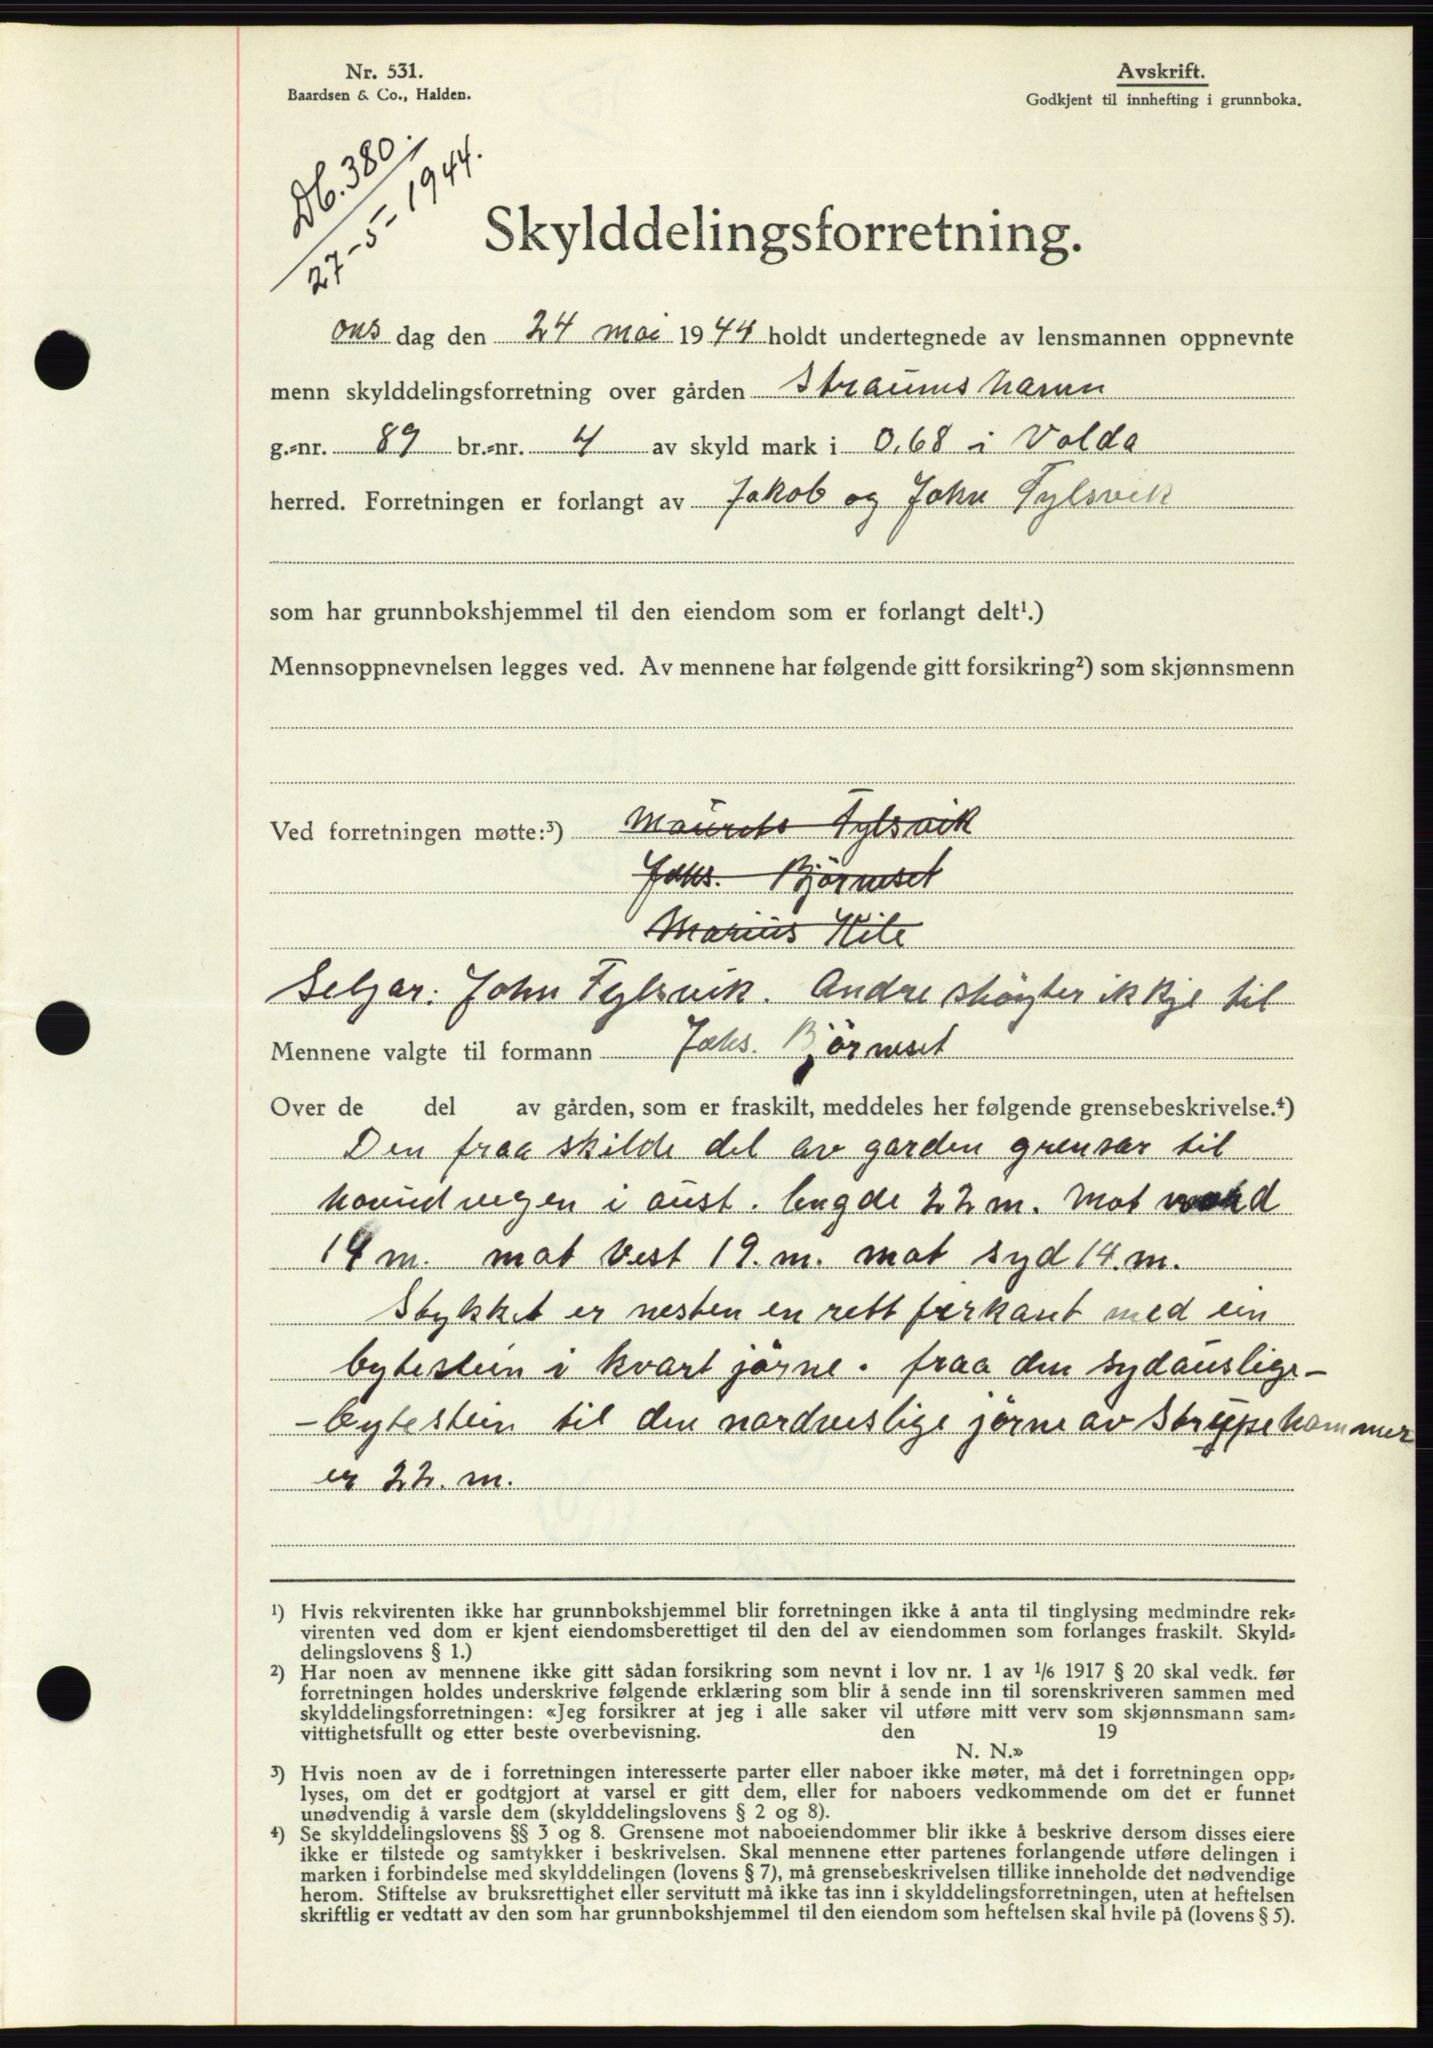 Nr. 531.
Baardsen & Co., Halden.
Avskrift.
Godkjent til innhefting i grunnboka.
Db. 380.
27-5-1944.
Skylddelingsforretning.
ons dag den 24 mai 1944 holdt undertegnede av lensmannen oppnevnte
menn skylddelingsforretning over gården Straumshamn
g.=nr. 89 br.=nr. 4 av skyld mark i 0,68 i Volda
herred. Forretningen er forlangt av Jakob og John Fylsvik
som har grunnbokshjemmel til den eiendom som er forlangt delt¹.)
Mennsoppnevnelsen legges ved. Av mennene har følgende gitt forsikring²) som skjønnsmenn
Ved forretningen møtte:³) Maurits Fylsvik
Johs. Bjørneset
Marius Kile
Seljar: John Fylsvik. Andre ikkje til
Mennene valgte til formann Johs. Bjørneset
Over de del av gården, som er fraskilt, meddeles her følgende grensebeskrivelse.⁴)
Den fraa skilde del av garden grensar til
hovudvegen i aust. lengde 22 m. Mot nord
14 m. mot vest 19. m. mot syd 14. m.
Stykket er nesten en rett firkant med ein
bytestein i kvart jørne. fraa den sydauslige-
-bytestein til den nordveslige jørne av Strypehammer
er 22. m.
¹) Hvis rekvirenten ikke har grunnbokshjemmel blir forretningen ikke å anta til tinglysing medmindre rek=
virenten ved dom er kjent eiendomsberettiget til den del av eiendommen som forlanges fraskilt. Skyld=
delingslovens § 1.)
²) Har noen av mennene ikke gitt sådan forsikring som nevnt i lov nr. 1 av 1/6 1917 § 20 skal vedk. før
forretningen holdes underskrive følgende erklæring som blir å sende inn til sorenskriveren sammen med
skylddelingsforretningen: «Jeg forsikrer at jeg i alle saker vil utføre mitt verv som skjønnsmann sam=
vittighetsfullt og etter beste overbevisning. den 19
N. N.»
³) Hvis noen av de i forretningen interesserte parter eller naboer ikke møter, må det i forretningen opp=
lyses, om det er godtgjort at varsel er gitt dem, eller for naboers vedkommende om det er funnet
unødvendig å varsle dem (skylddelingslovens § 2 og 8).
⁴) Se skylddelingslovens §§ 3 og 8. Grensene mot naboeiendommer blir ikke å beskrive dersom disses eiere
ikke er tilstede og samtykker i beskrivelsen. Skal mennene etter partenes forlangende utføre delingen i
marken i forbindelse med skylddelingen (lovens § 7), må grensebeskrivelsen tillike inneholde det nødvendige
herom. Stiftelse av bruksrettighet eller servitutt må ikke tas inn i skylddelingsforretningen, uten at heftelsen
skriftlig er vedtatt av den som har grunnbokshjemmel til den eiendom som heftelsen skal hvile på (lovens § 5).